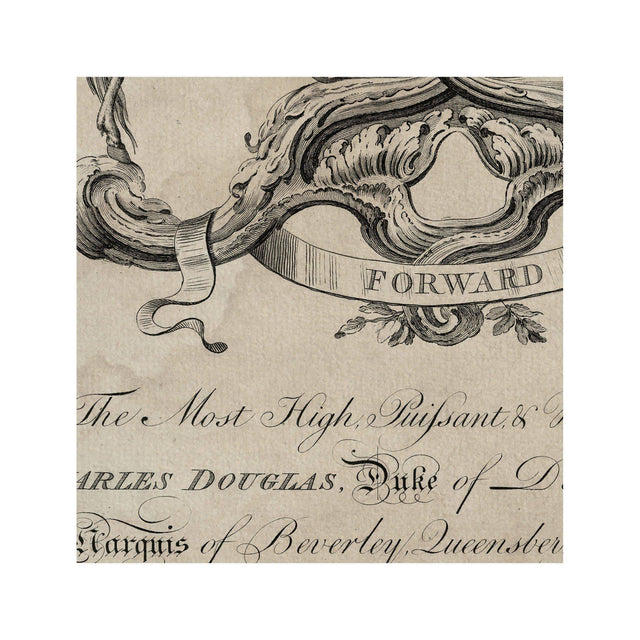 FORWARD
The Most High, Puiſsant, &
ARLES DOUGLAS, Duke of D
Marquis of Beverley, Queensber